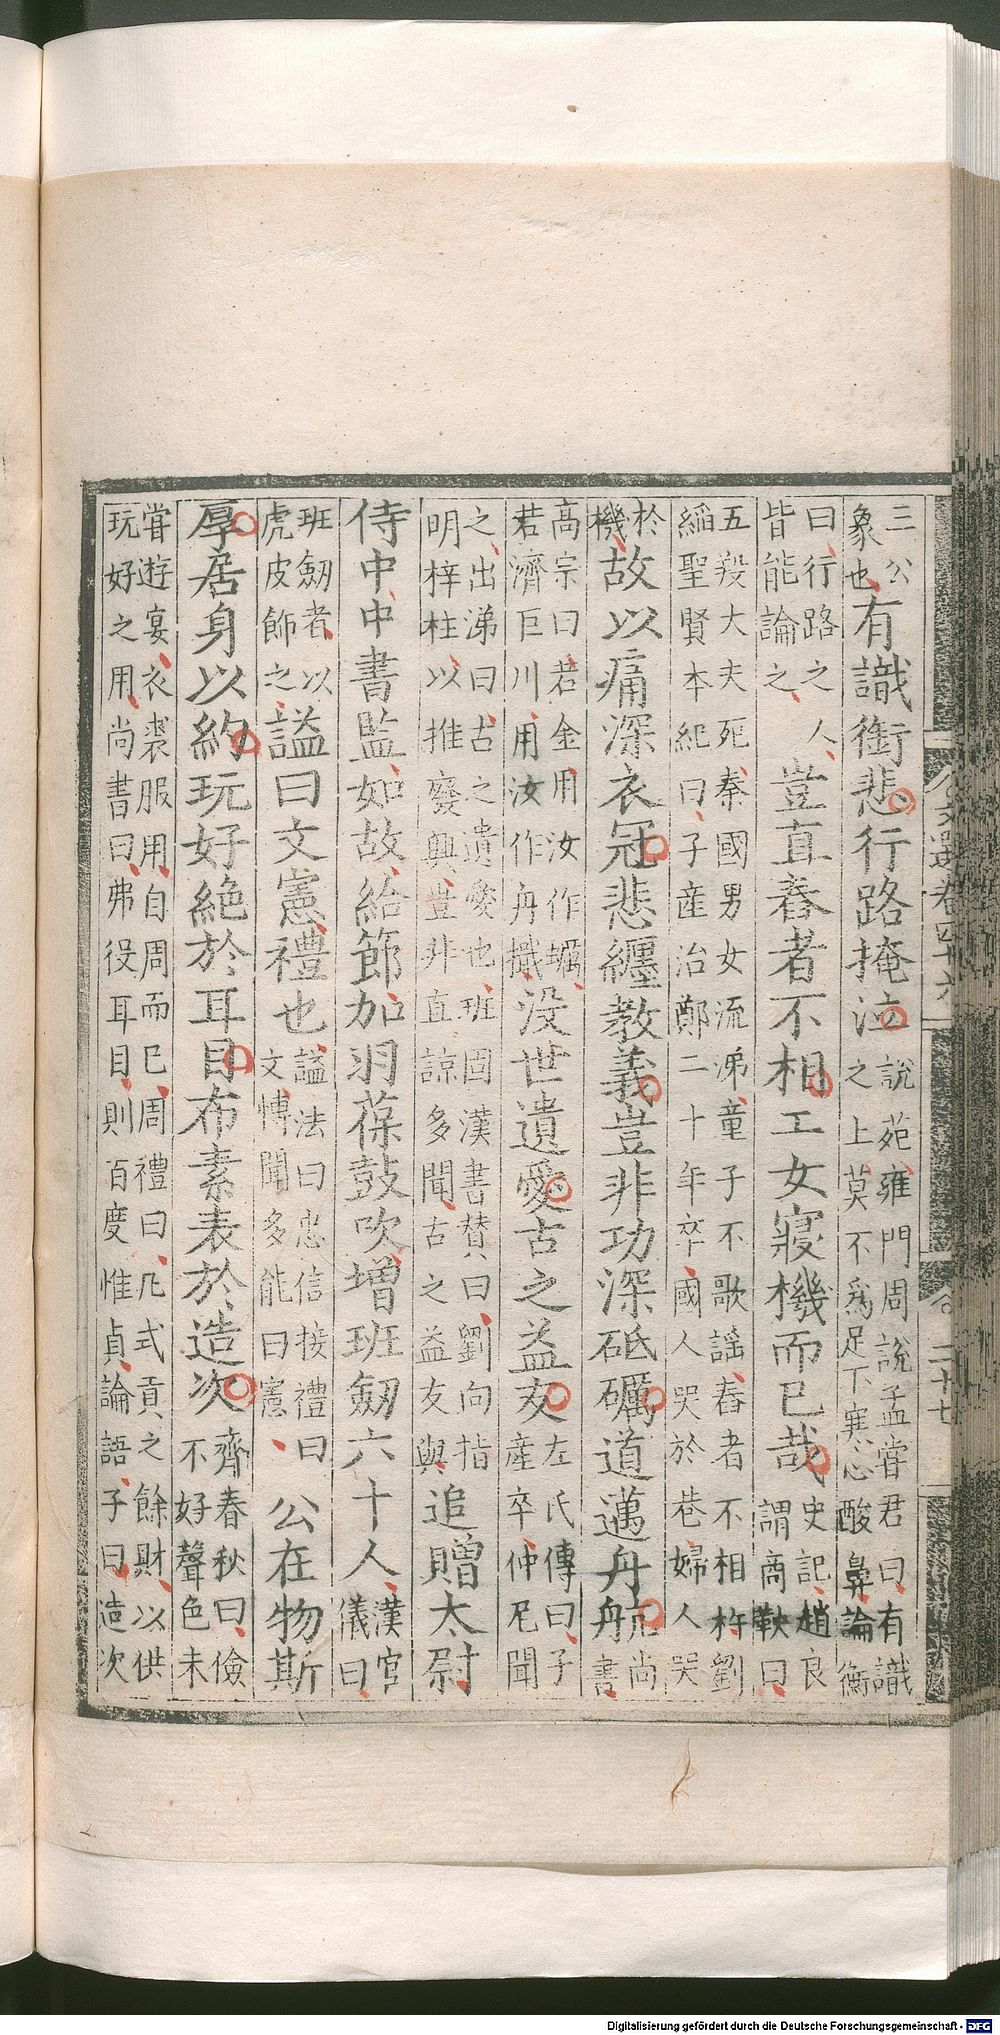 文選卷四十六 二十七
三公
象也
有識銜悲行路掩泣
說苑雍門周說孟嘗君曰有識
之上莫不爲足下寒心酸鼻論衡
曰行路之人
皆能論之
豈直舂者不相工女寢機而已哉
史記趙良
謂商鞅曰
五羖大夫死秦國男女流涕童子不歌謠舂者不相杵劉
縚聖賢本紀曰子產治鄭二十年卒國人哭於巷婦人哭
於
機
故以痛深衣冠悲纏教義豈非功深砥礪道邁舟航
尚
書
高宗曰若金用汝作礪
若濟巨川用汝作舟檝
没世遺愛古之益友
左氏傳曰子
產卒仲尼聞
之出涕曰古之遺愛也班固漢書贊曰劉向指
明梓柱以推廢興豈非直諒多聞古之益友與
追贈太尉
侍中中書監如故給節加羽葆鼓吹增班劒六十人
漢官
儀曰
班劒者以
虎皮飾之
謚曰文憲禮也
謚法曰忠信接禮曰
文博聞多能曰憲
公在物斯
厚居身以約玩好絕於耳目布素表於造次
齊春秋曰儉
不好聲色未
嘗遊宴衣裘服用自周而已周禮曰凡式貢之餘財以供
玩好之用尚書曰弗役耳目則百度惟貞論語子曰造次
Digitalisierung gefördert durch die Deutsche Forschungsgemeinschaft - DFG